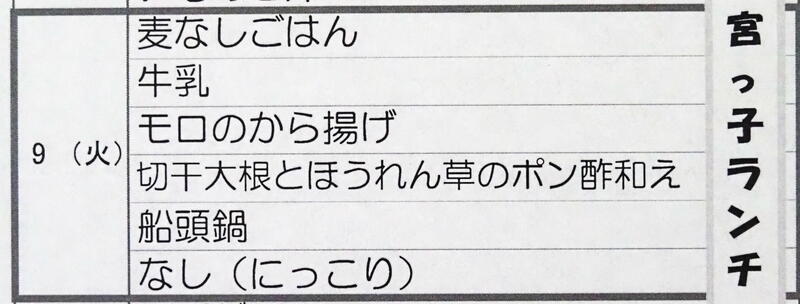 9 (火)
麦なしごはん
牛乳
モロのから揚げ
切干大根とほうれん草のポン酢和え
船頭鍋
なし（にっこり）
宮っ子ランチ